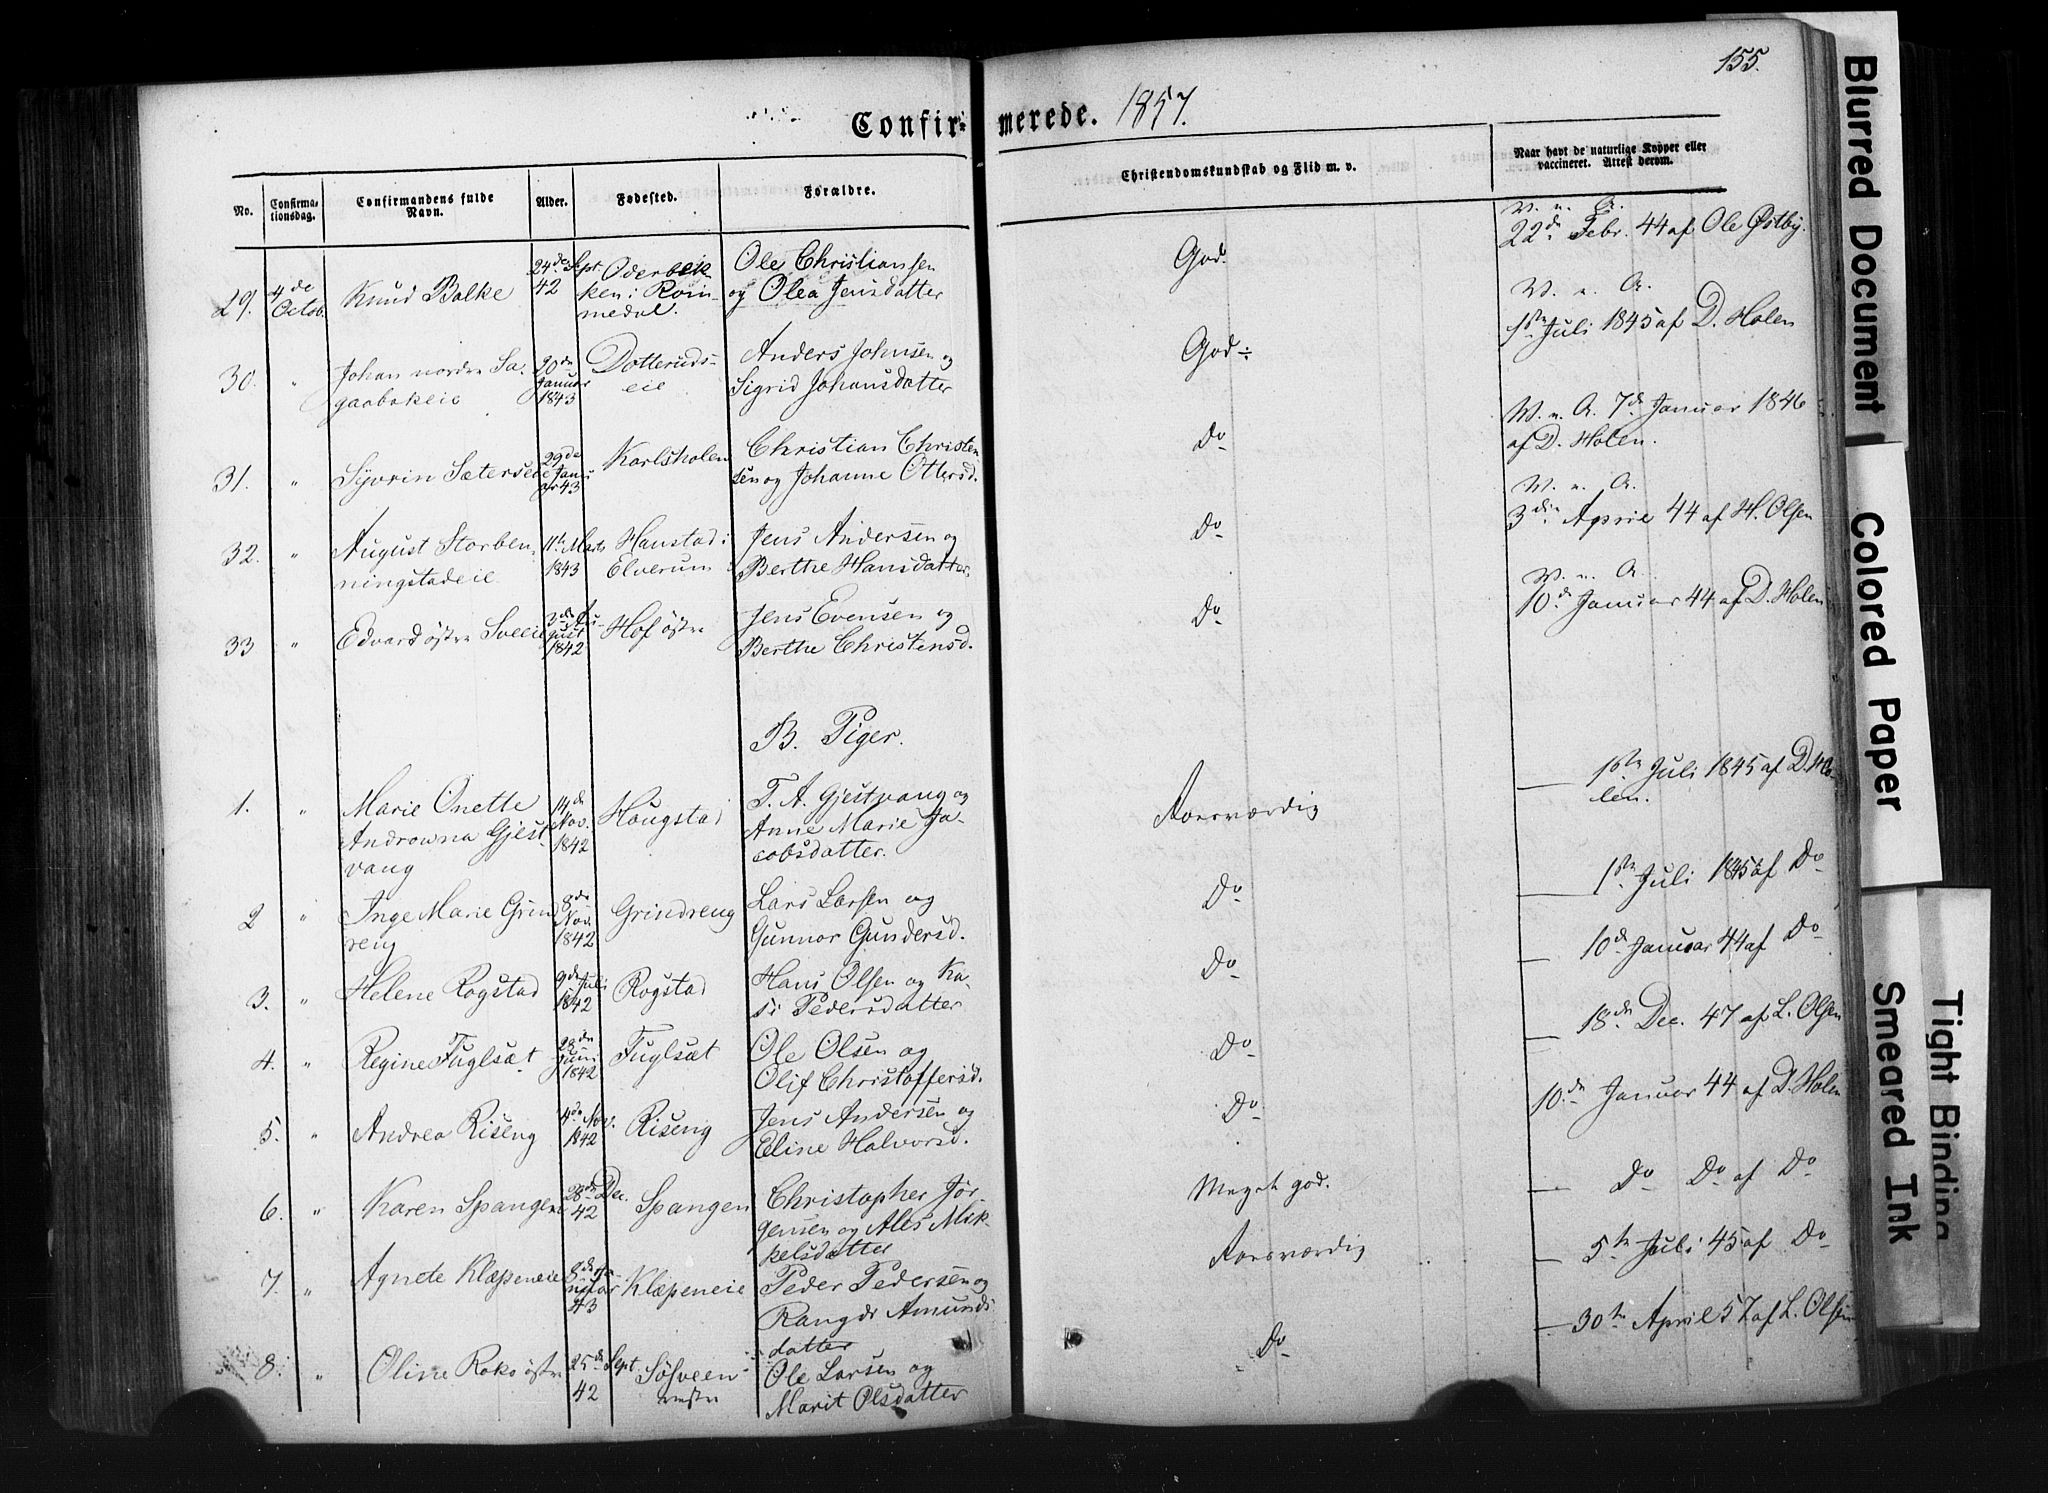 155.
Confir- merede. 1857.
No.
Confirma-
tionsdag.
Confirmandens fulde
Navn.
Alder.
Fødested.
Forældre.
Christendomskundskab og Flid m. v.
Naar havt de naturlige Kopper eller
vaccineret. Attest derom.
29. 4de Octob. Knud Balke 24de Sept. 42 Oderbek-
ken i Rom-
medal. Ole Christiansen
og Olea Jensdatter God. V. u. A.
22de Febr. 44 af Ole Østby.
30. " Johan nordre Sa-
gaabokeie 20de Januar 1843 Dotteruds-
eie Anders Johnsen og
Sigrid Johansdatter God÷ V. u. A.
1ste Juli 1845 af D. Holen
31. " Syvrin Sæterseie 29de Janu
ar 43 Karlsholen Christian Christen
sen og Johanne Ottersd. Do V. u. A. 7de Januar 1846
af D. Holen.
32. " August Storben-
ningstadeie 11te Marts 1843 Hanstad i
Elverum Jens Andersen og
Berthe Hansdatter. Do V. u. A.
3die April 44 af H. Olsen
33 " Edvard østre Sveeie 3de Au-
gust 1842 Hof østre Jens Evensen og
Berthe Christensd. Do V. u. A.
10de Januar 44 af D. Holen
B. Piger.
1. " Marie Onette
Androwna Gjest-
vang 14de Nov. 1842 Hougstad T. A. Gjestvang og
Anne Marie Ja-
cobsdatter. Roesværdig — 1ste Juli 1845 af D. Ho-
len.
2 " Inge Marie Grind
reng 8de Nov. 1842 Grindreng Lars Larsen og
Gunnor Gundersd. Do — 1ste Juli 1845 af Do
3. " Helene Rogstad 9de Juli 1842 Rogstad Hans Olsen og Ka-
si Pedersdatter Do — 10de Januar 44 af Do
4. " Regine Fuglsæt 28de Juni 1842 Fuglsæt Ole Olsen og
Olif Christoffersd. Do — 18de Dec. 47 af L. Olsen
5. " Andrea Riseng 4de Nov. 1842 Riseng Jens Andersen og
Eline Halvorsd. Do 10de Januar 44 af D. Holen
6. " Karen Spangen 28de Dec. 42 Spangen Christopher Jør-
gensen og Ales Mik-
kelsdatter Meget god. — Do Do af Do
7. " Agnete Klæpeneie 8de Ja-
nuar 43 Klæpeneie Peder Pedersen og
Rangdi Amunds-
datter Roesværdig — 5te Juli 45 af Do
8. " Oline Roko østre 25de Sept. 42 Søsveen
vestre Ole Larsen og
Marit Olsdatter Do — 30te April 57 af L. Olsen
Blurred Document
Colored Paper
Smeared Ink
Tight Binding